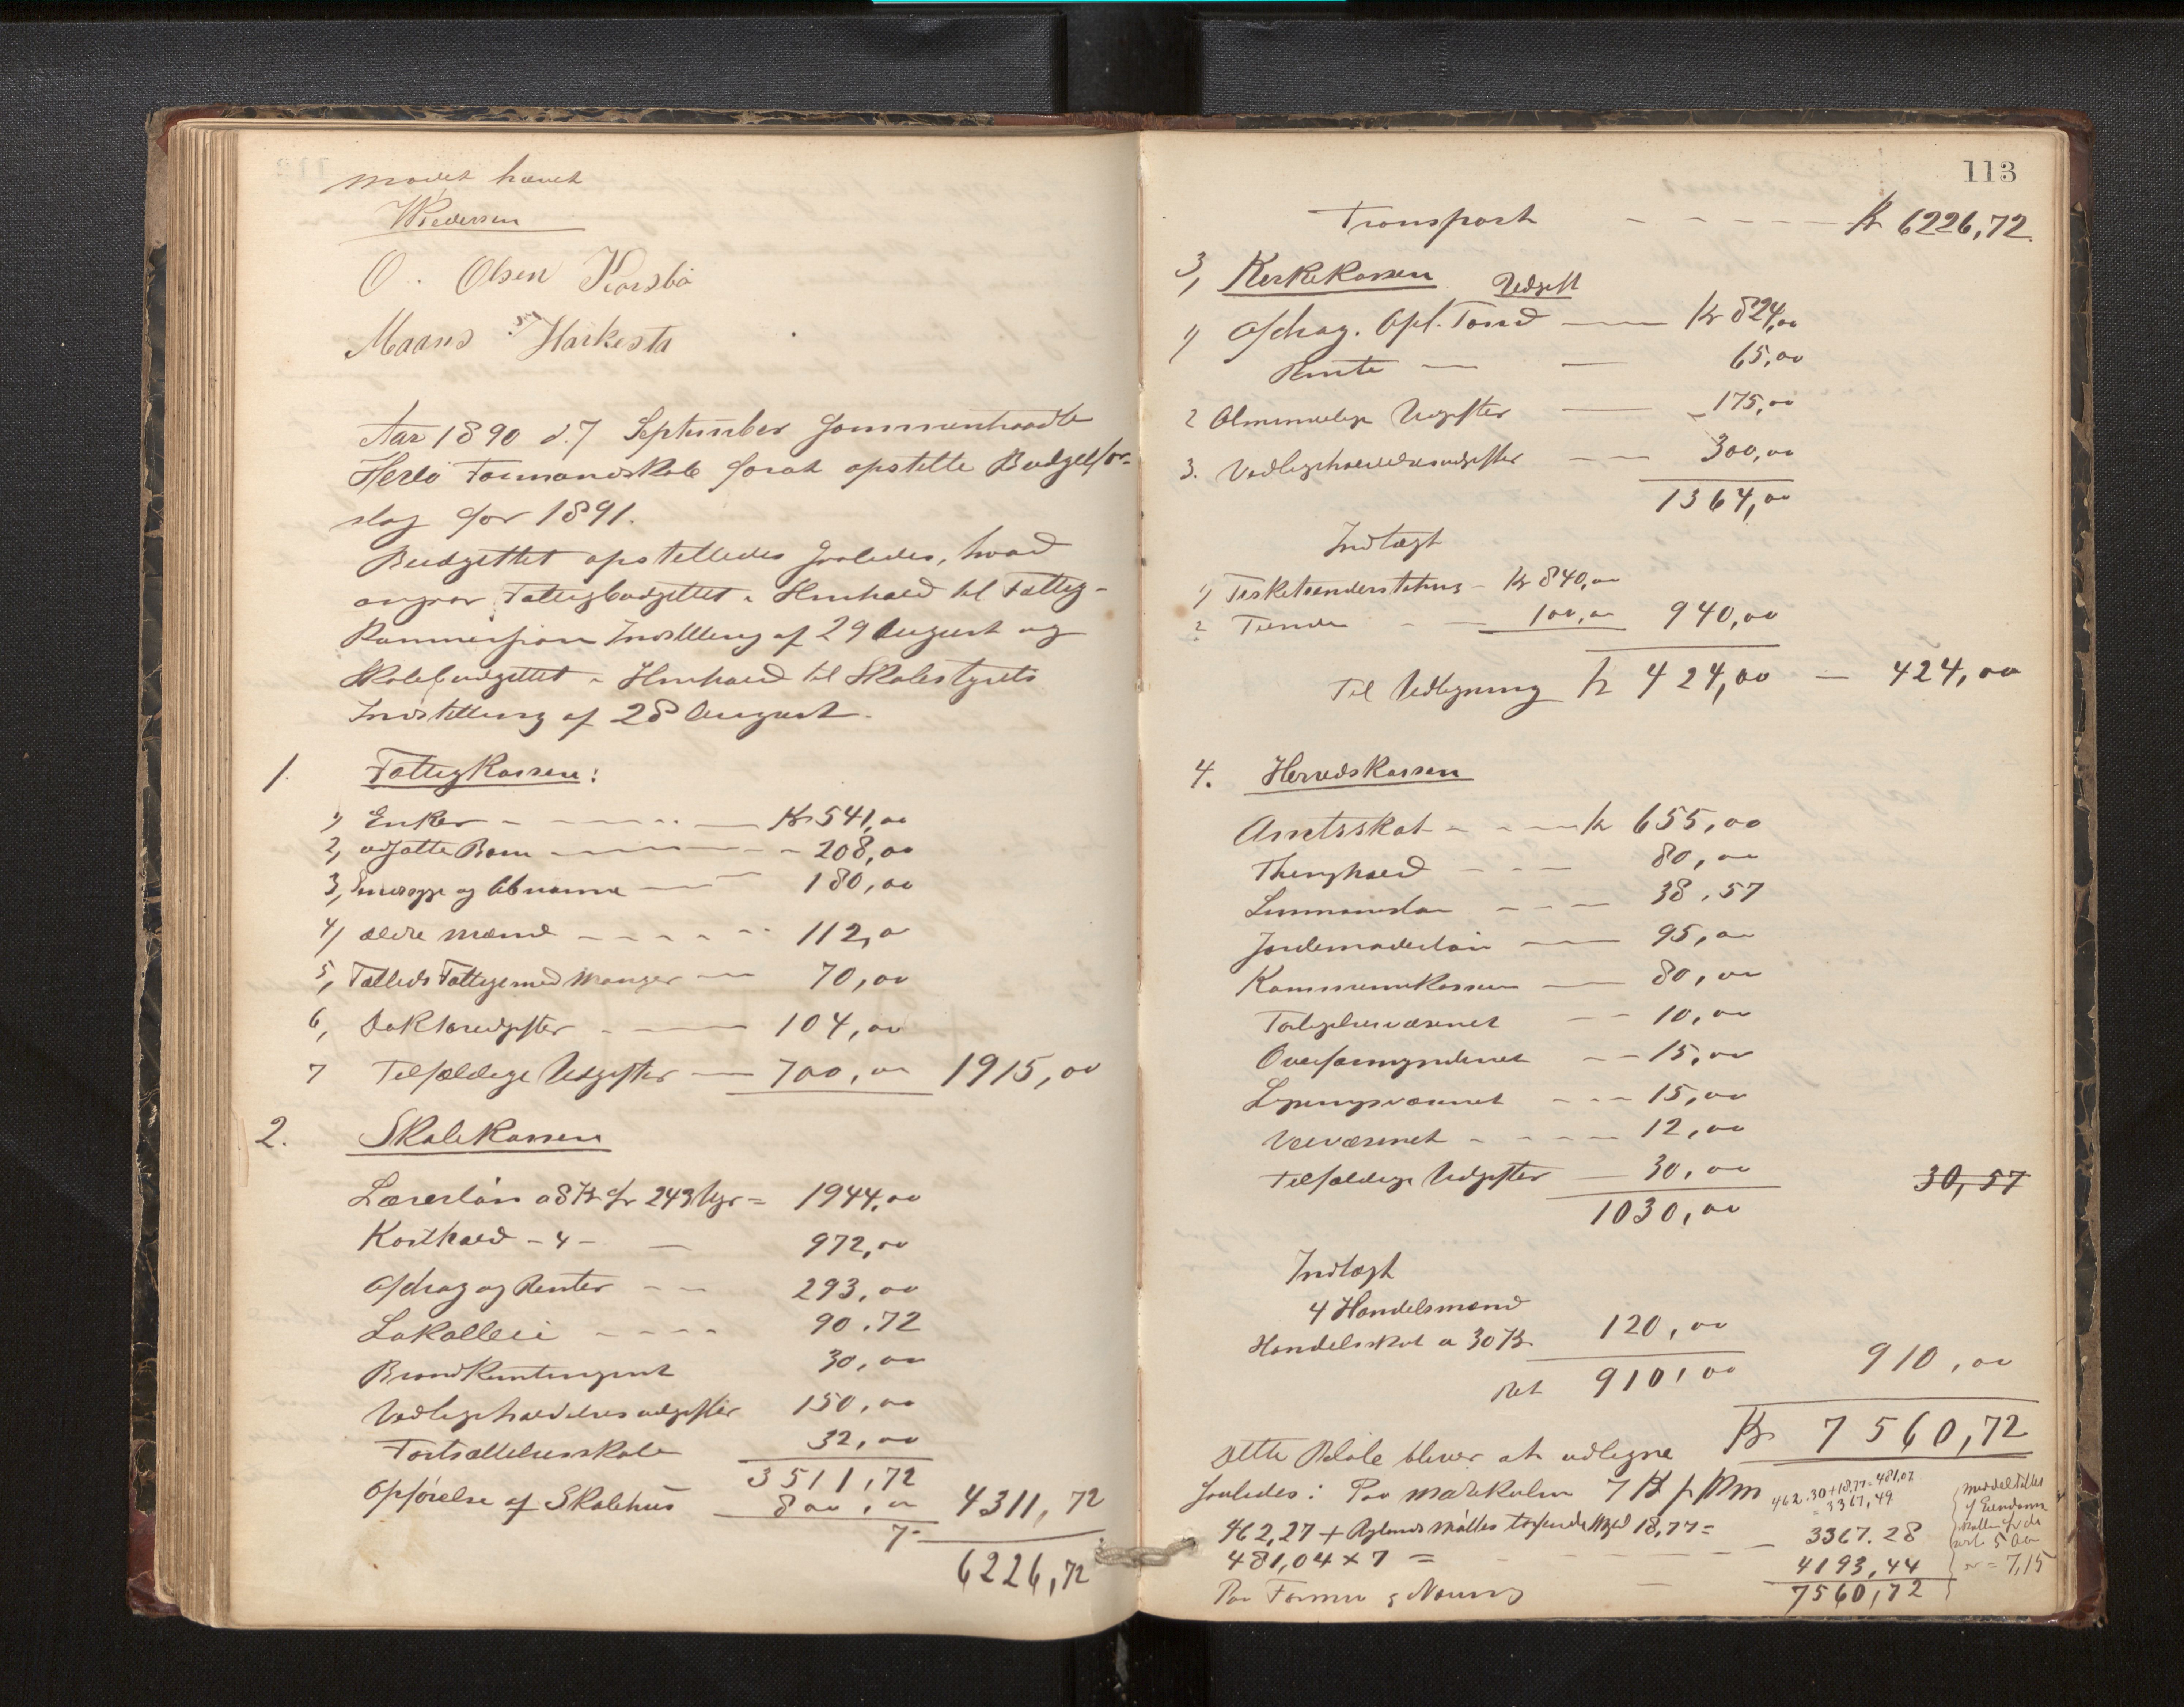 mødet hævet
WPedersen
O. Olsen Kårsbø
Maans Harkestø
Aar 1890 d. 7 September sammentraadte
Herlø Formandskab forat opstille Budgetfor-
slag for 1891.
Budgettet opstilledes saaledes, hvad
angaar Fattigbudgettet i Henhold til Fattig-
kommissions Indstilling af 29 August og
Skolebudgettet i Henhold til Skolestyrets
Indstilling af 28 August.
1. Fattigkassen:
1) Enker - - - - Kr 541,00
2, udsatte Børn - - - 208,00
3, og Abnorme - 180,00
4) ældre Mænd - - - - 112,00
5, Fælleds Fattige med Manger - 70,00
6, Doktorudgifter - - 104,00
7 Tilfældige Udgifter - 700,00 1915,00
2. Skolekassen
Lærerløn a 8 Kr for 243 Uger = 1944,00
Kosthold - 4 - - 972,00
Afdrag og Renter - - 293,00
Lokalleie - - - - 90.72
Brandkontingent 30,00
Vedligeholdelsesudgifter 150,00
Fortsættelsesskole 32,00
3511,72
Opførelse af Skolehus 800,00 4311,72
6226,72
113
Transport - - - - - Kr 6226,72
3, Kirkekassen
Udgift
1) Afdrag. Opl. Fond - Kr 824,00
Rente - - 65,00
2 Almindelige Udgifter - 175,00
3. Vedligeholdelsesudgifter - - 300,00
1364,00
Indtægt
1) Fisketiendeerstatning - Kr 840,00
2 Tiende - - 100,00 940,00
Til Udligning Kr 424,00 - 424,00
4. Herredskassen
Amtsskat - - - Kr 655,00
Thinghold - - - 80,00
Lensmandsløn - - - 38,57
Jordemoderløn - 95,00
Kommunekassen - 80,00
Forligelsesvæsenet - - 10,00
Overformynderiet - - 15,00
Løsningsvæsenet - - - 15,00
Veivæsenet - - - - 12,00
Tilfældige Udgifter - 30,00 30,57
1030,00
Indtægt
4 Handelsmænd
Handelsskat a 30 Kr 120,00
Net 910,00 910,00
Kr 7560,72
Dette Beløb bliver at udligne
saaledes: Paa Matrikulen 7 Kr pr Skm
462.30+18,77=481,07
= 3367,49
462,27 + 18,77 = - 3367.28
481,04 x 7 = 4193,44
Paa Formue & Næring - 7560,72
Middeltallet
af Eiendoms
skatten for de
5 Aar
er = 7,15